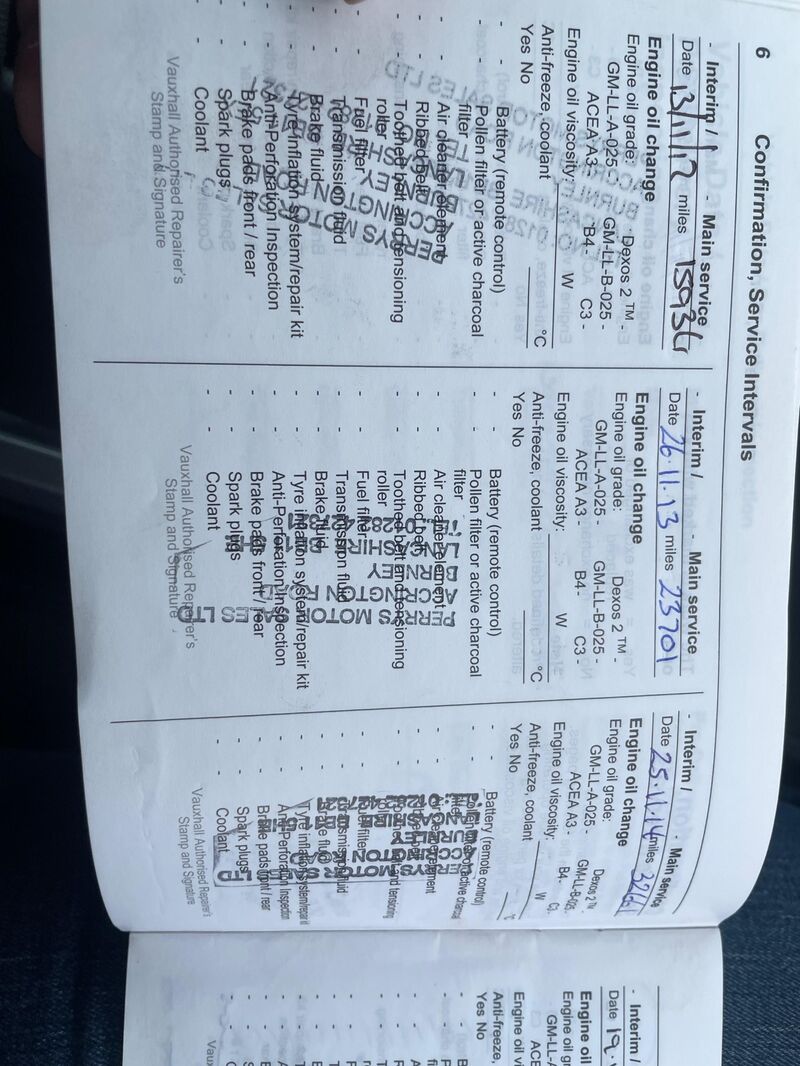 6
Confirmation, Service Intervals
- Interim / - Main service
Date 13/11/12 miles 15936
Engine oil change
Engine oil grade: Dexos 2 ™ -
GM-LL-A-025 - GM-LL-B-025 -
ACEA A3 - B4 - C3 -
Engine oil viscosity: W
Anti-freeze, coolant °C
Yes No
- - Battery (remote control)
- - Pollen filter or active charcoal
filter
- - Air cleaner element
- - Ribbed belt
- - Toothed belt and tensioning
roller
- - Fuel filter
- - Transmission fluid
- - Brake fluid
- - Tyre inflation system/repair kit
- - Anti-Perforation Inspection
- - Brake pads front / rear
- - Spark plugs
- - Coolant
PERRYS MOTOR SALES LTD
ACCRINGTON ROAD
BURNLEY
Vauxhall Authorised Repairer's
Stamp and Signature
- Interim / - Main service
Date 26.11.13 miles 23701
Engine oil change
Engine oil grade: Dexos 2 ™ -
GM-LL-A-025 - GM-LL-B-025 -
ACEA A3 - B4 - C3 -
Engine oil viscosity: W
Anti-freeze, coolant °C
Yes No
- - Battery (remote control)
- - Pollen filter or active charcoal
filter
- - Air cleaner element
- - Ribbed belt
- - Toothed belt and tensioning
roller
- - Fuel filter
- - Transmission fluid
- - Brake fluid
- - Tyre inflation system/repair kit
- - Anti-Perforation Inspection
- - Brake pads front / rear
- - Spark plugs
- - Coolant
PERRYS MOTOR SALES LTD
ACCRINGTON ROAD
BURNLEY
Vauxhall Authorised Repairer's
Stamp and Signature
- Interim / - Main service
Date 25.11.14 miles
Engine oil change
Engine oil grade: Dexos 2 ™ -
GM-LL-A-025 - GM-LL-B-025 -
ACEA A3 - B4 - C3 -
Engine oil viscosity: W
Anti-freeze, coolant °C
Yes No
- - Battery (remote control)
- - Pollen filter or active charcoal
filter
- - Air cleaner element
- - Ribbed belt
- - Toothed belt and tensioning
roller
- - Fuel filter
- - Transmission fluid
- - Brake fluid
- - Tyre inflation system/repair kit
- - Anti-Perforation Inspection
- - Brake pads front / rear
- - Spark plugs
- - Coolant
Vauxhall Authorised Repairer's
Stamp and Signature
- Interim /
Date 19.
Engine oil
Engine oil gr
GM-LL-A
ACE
Engine oil vi
Anti-freeze,
Yes No